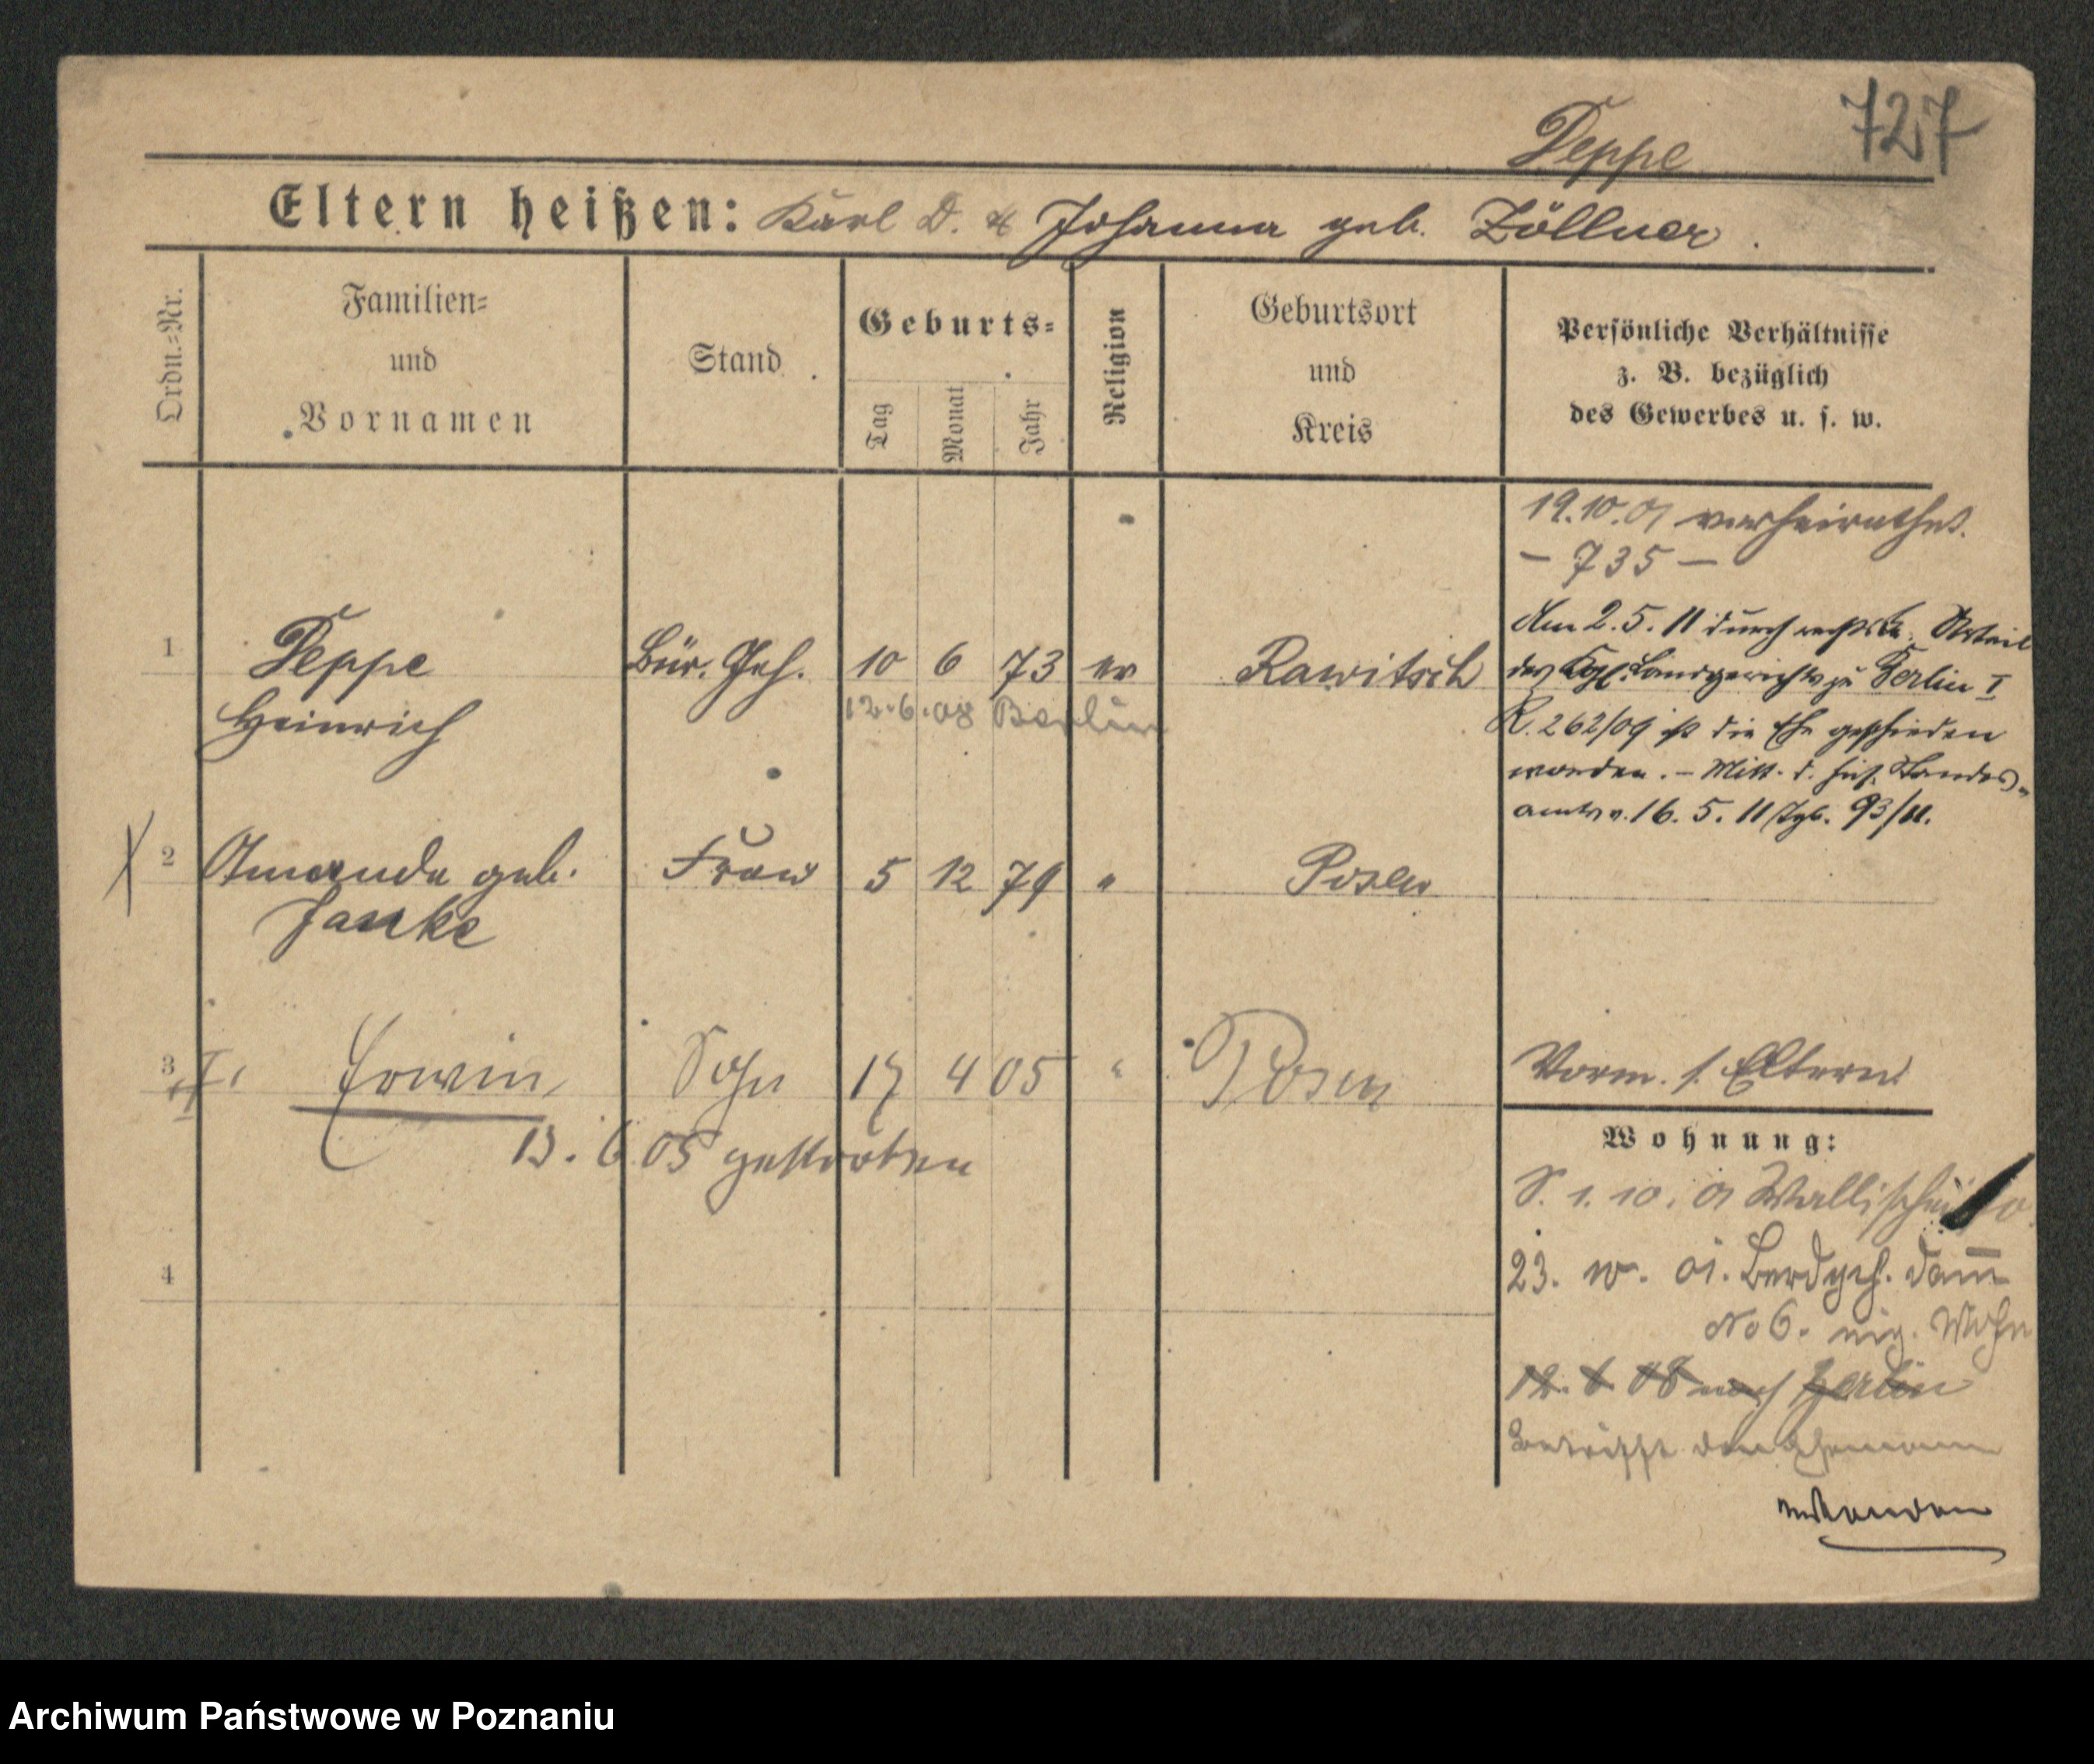 727
Deppe
Eltern heißen: Karl D. & Johanna geb. Zöllner.
Ordn.-Nr.
Familien-
und
Vornamen
Stand
Geburts-
Tag
Monat
Jahr
Religion
Geburtsort
und
Kreis
Persönliche Verhältnisse
z. B. bezüglich
des Gewerbes u. s. w.
19.10.01 verheirathet.
– 735 –
1 Deppe Bür. Geh. 10 6 73 ev Rawitsch
Heinrich
12.6.08 Berlin
Am 2.5.11 durch rechtskr. Urteil
des Kgl. Landgerichts zu Berlin I
R. 262/09 ist die Ehe geschieden
worden. – Mitt. d. hies. Standes-
amts v. 16.5.11 Tgb. 93/11.
2 Amanda geb. Frau 5 12 79 " Posen
Janke
3 Erwin Sohn 17 4 05 " Posen
13.6.05 gestorben
Vorm. s. Eltern
Wohnung:
S. 1.10.01 Wallischei
23. 10. 01. Berdych. Dam̅
No 6. eig. Wohn
12. 6 08 nach Berlin
betrifft den Ehemann
4